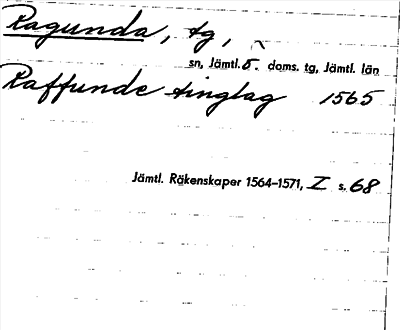 Ragunda, tg,
sn, Jämtl. ö. doms. tg, Jämtl. län
Raffunde tinglag 1565
Jämtl. Räkenskaper 1564-1571, I s. 68